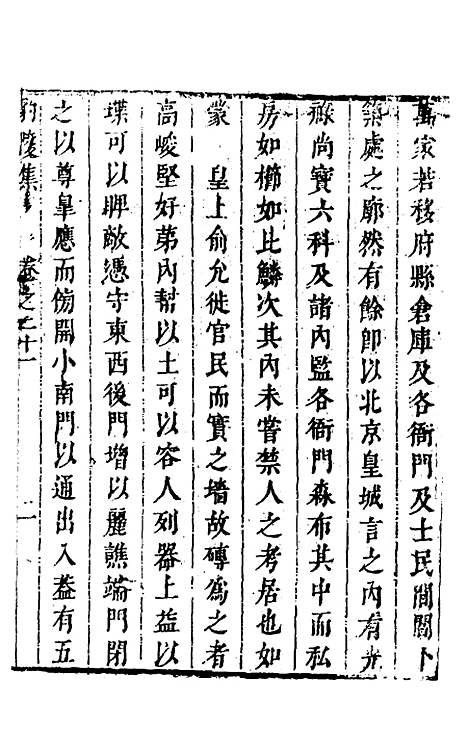 萬家若移府縣倉庫及各衙門及士民閭閻卜
築處之廓然有餘卽以北京皇城言之內有光
祿尚寶六科及諸內監各衙門森布其中而私
房如櫛如比鱗次其內未嘗禁人之考居也如
蒙　皇上俞允徙官民而實之墻故磚爲之者
高峻堅好第內幇以土可以容人列器上益以
堞可以睥敵憑守東西後門增以麗譙端門閉
之以尊皇應而傍開小南門以通出入葢有五
陵集　卷之二十一